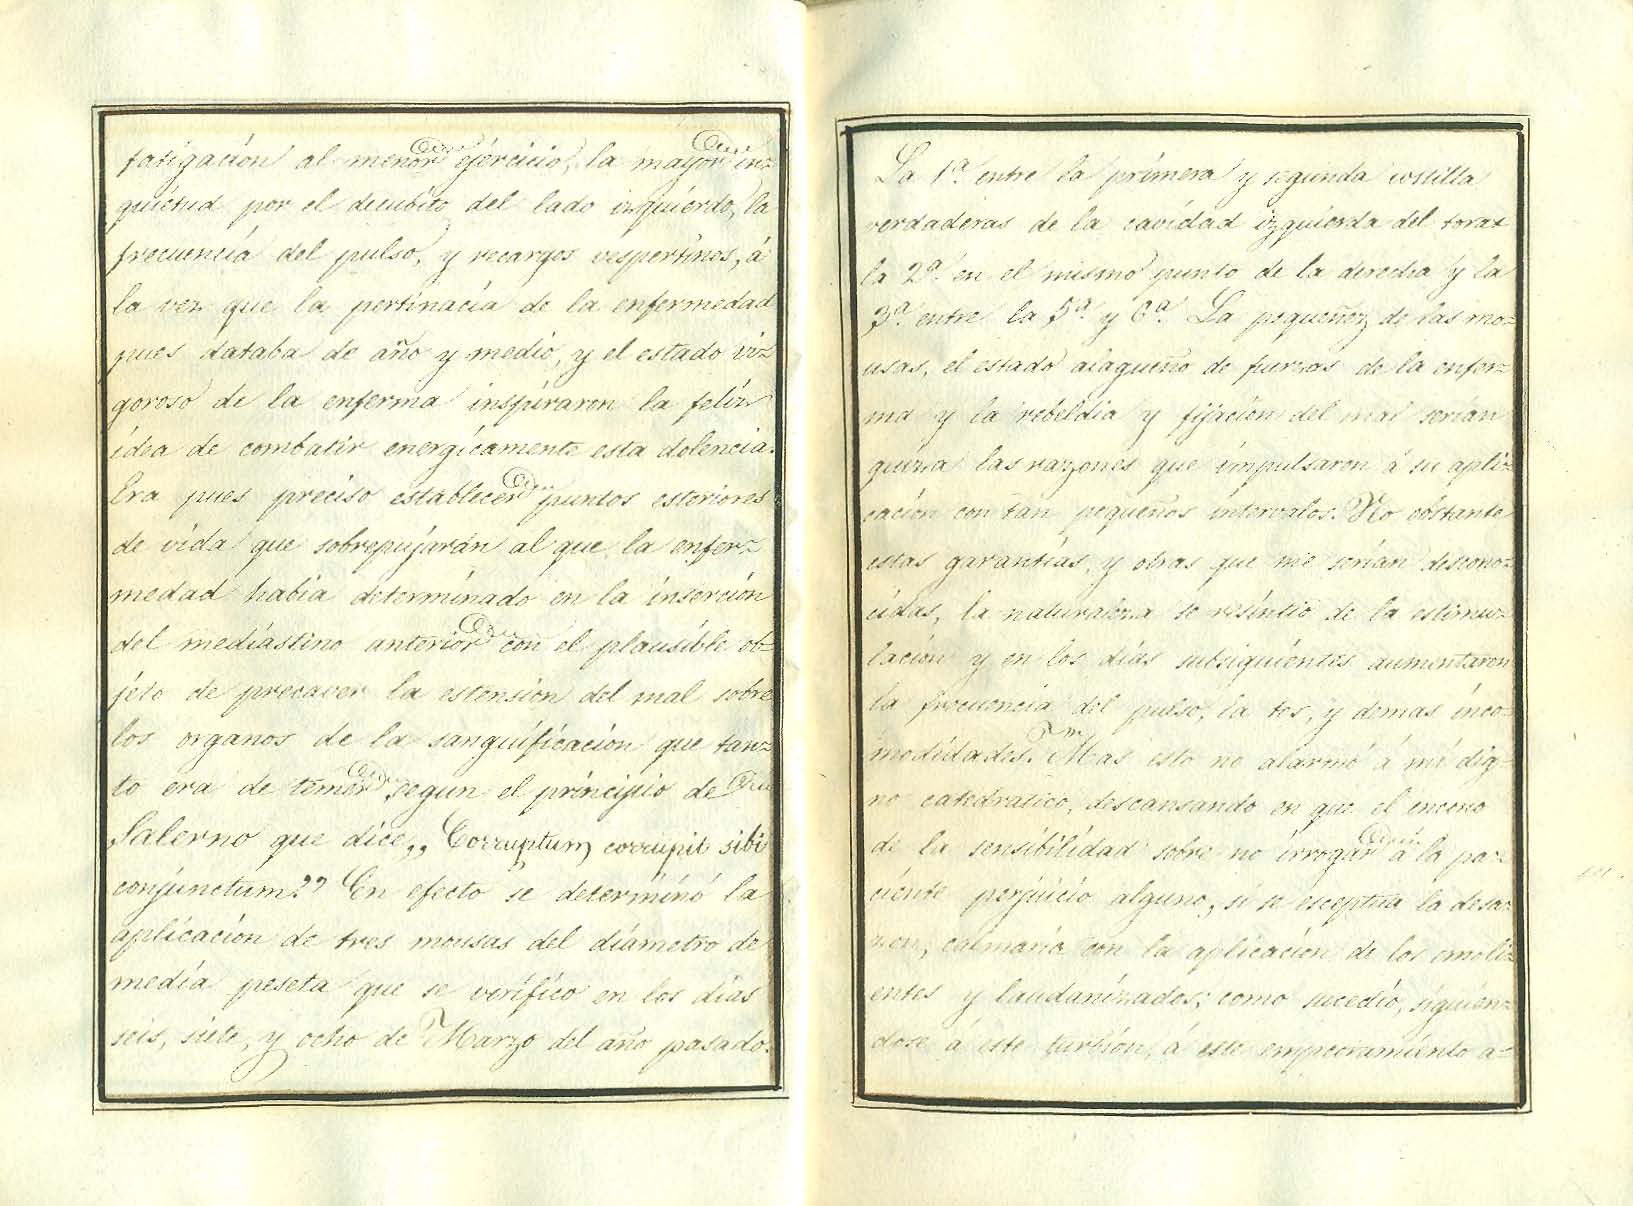 fatigación al menor ejercicio, la mayor in=
quietud por el decubito del lado izquierdo, la
frecuencia del pulso, y recargos vespertinos, á
la vez que la pertinacia de la enfermedad
pues databa de año y medio, y el estado vi=
goroso de la enferma inspiraron la feliz
idea de combatir energícamente esta dolencia.
Era pues preciso establecer puntos esteriores
de vida que sobrepujarán al que la enfer=
medad había determinado en la inserción
del mediastino anterior con el plausible ob=
jeto de precaver la estensión del mal sobre
los organos de la sanguificación que tan=
to era de temer segun el principio de
Salerno que dice,, Corruptum corrupit sibi
conjunctum?? En efecto se determinó la
aplicación de tres mousas del diámetro de
media peseta que se verifico en los días
seis, siete, y ocho de Marzo del año pasado.
La 1ª. entre la primera y segunda costilla
verdaderas de la cavidad izquierda del torax
la 2ª. en el mismo punto de la derecha y la
3ª. entre la 5ª. y 6ª. La pequeñez de las mo=
usas, el estado alagueño de fuerzas de la enfer=
ma y la rebeldia y fijación del mal serían
quiza las razones que impulsaron á su apli=
cación con tan pequeños intervalos. No obstante
estas garantías, y otras que me serían descono=
cidas, la naturaleza se resintió de la estimu=
lación y en los días subsiguientes aumentaron
la frecuencia del pulso, la tos, y demas inco=
modidades. Mas esto no alarmó á mi dig=
no catedratico, descansando en que el enceno
de la sensibilidad sobre no irrogar á la pa=
ciente perjuicio alguno, si se esceptua la desa=
zon, calmaría con la aplicación de los emoli=
entes y laudanizados; como sucedio, siguien=
dose á este turbión, á este empeoramiento a=